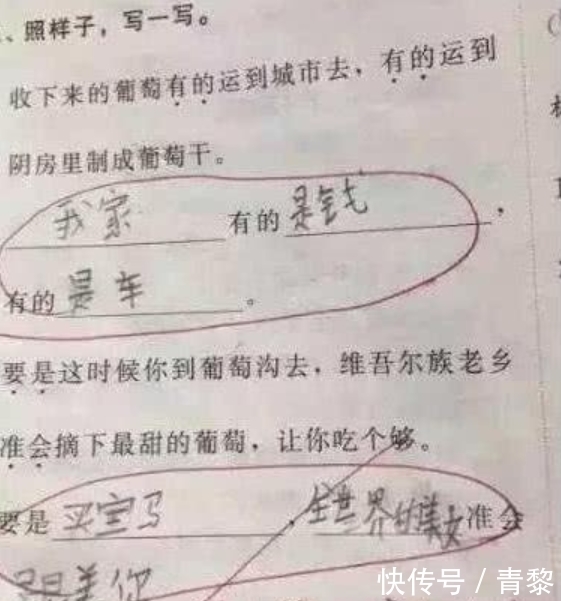 、照样子，写一写。
收下来的葡萄有的运到城市去，有的运到
阴房里制成葡萄干。
我家有的是钱，
有的是车。
要是这时候你到葡萄沟去，维吾尔族老乡
准会摘下最甜的葡萄，让你吃个够。
要是买宝马，全世界的美女准会
羡你
快传号／青黎